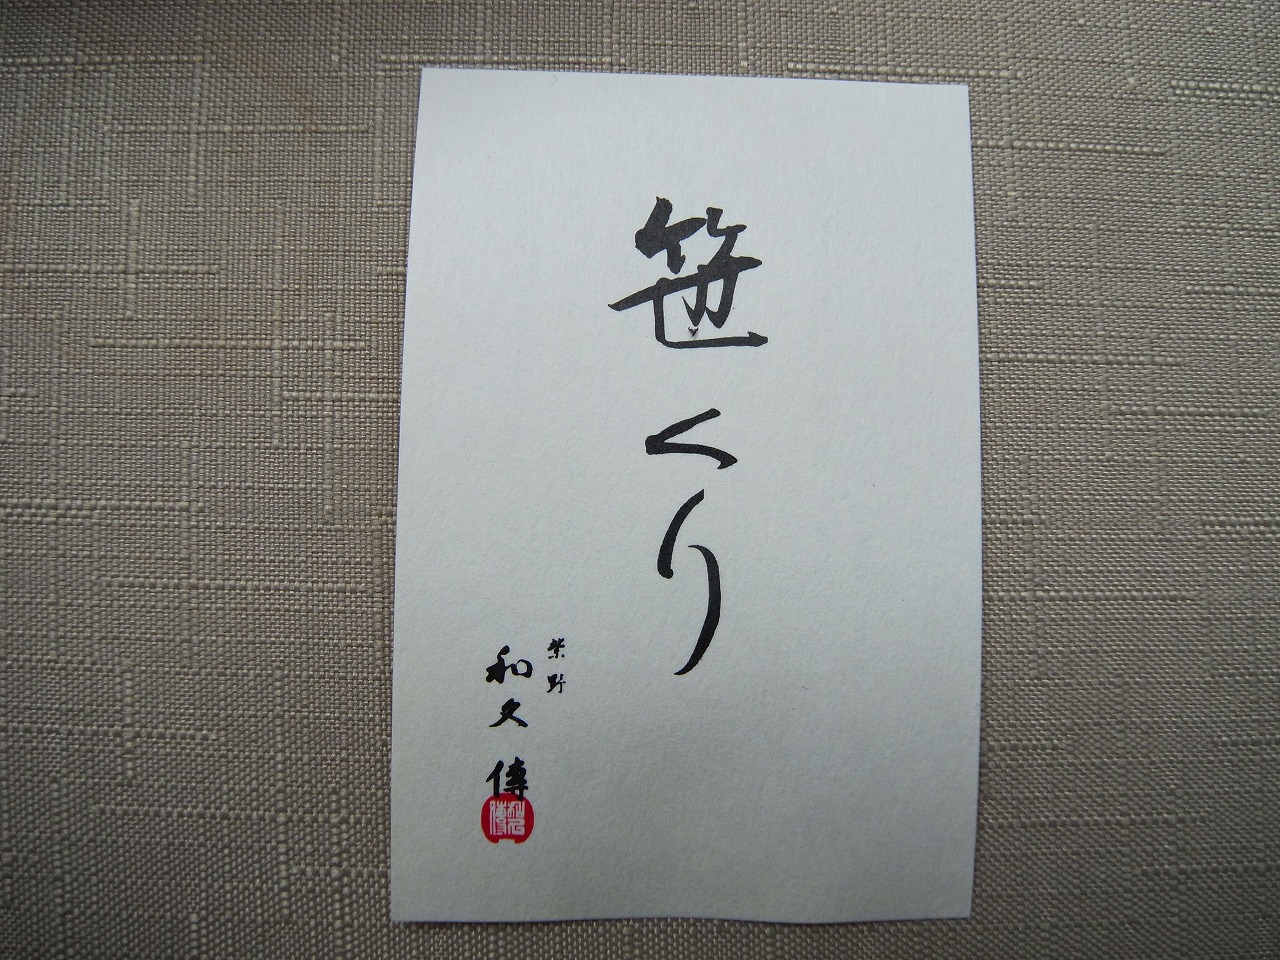 笹くり
紫野
和久傳